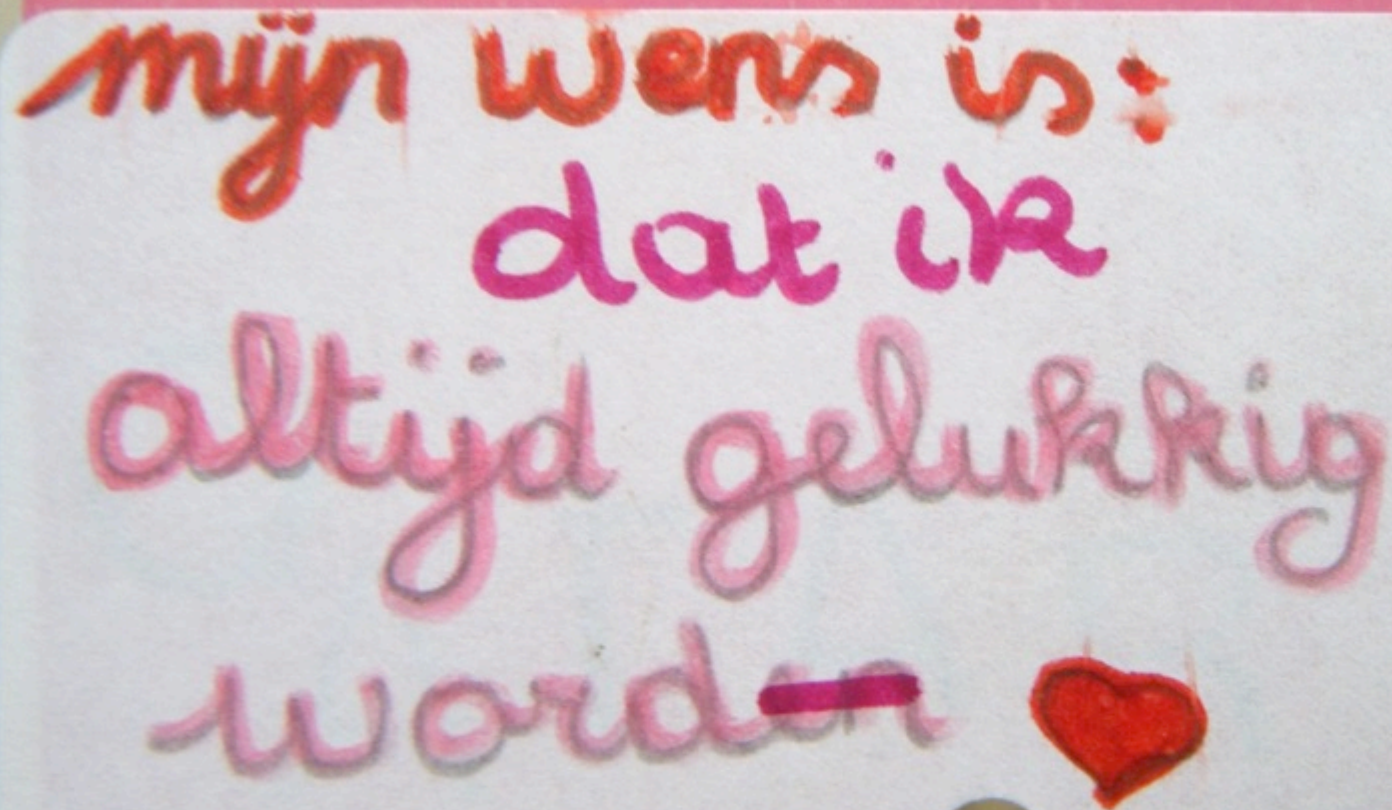 mijn wens is:
dat ik
altijd gelukkig
word